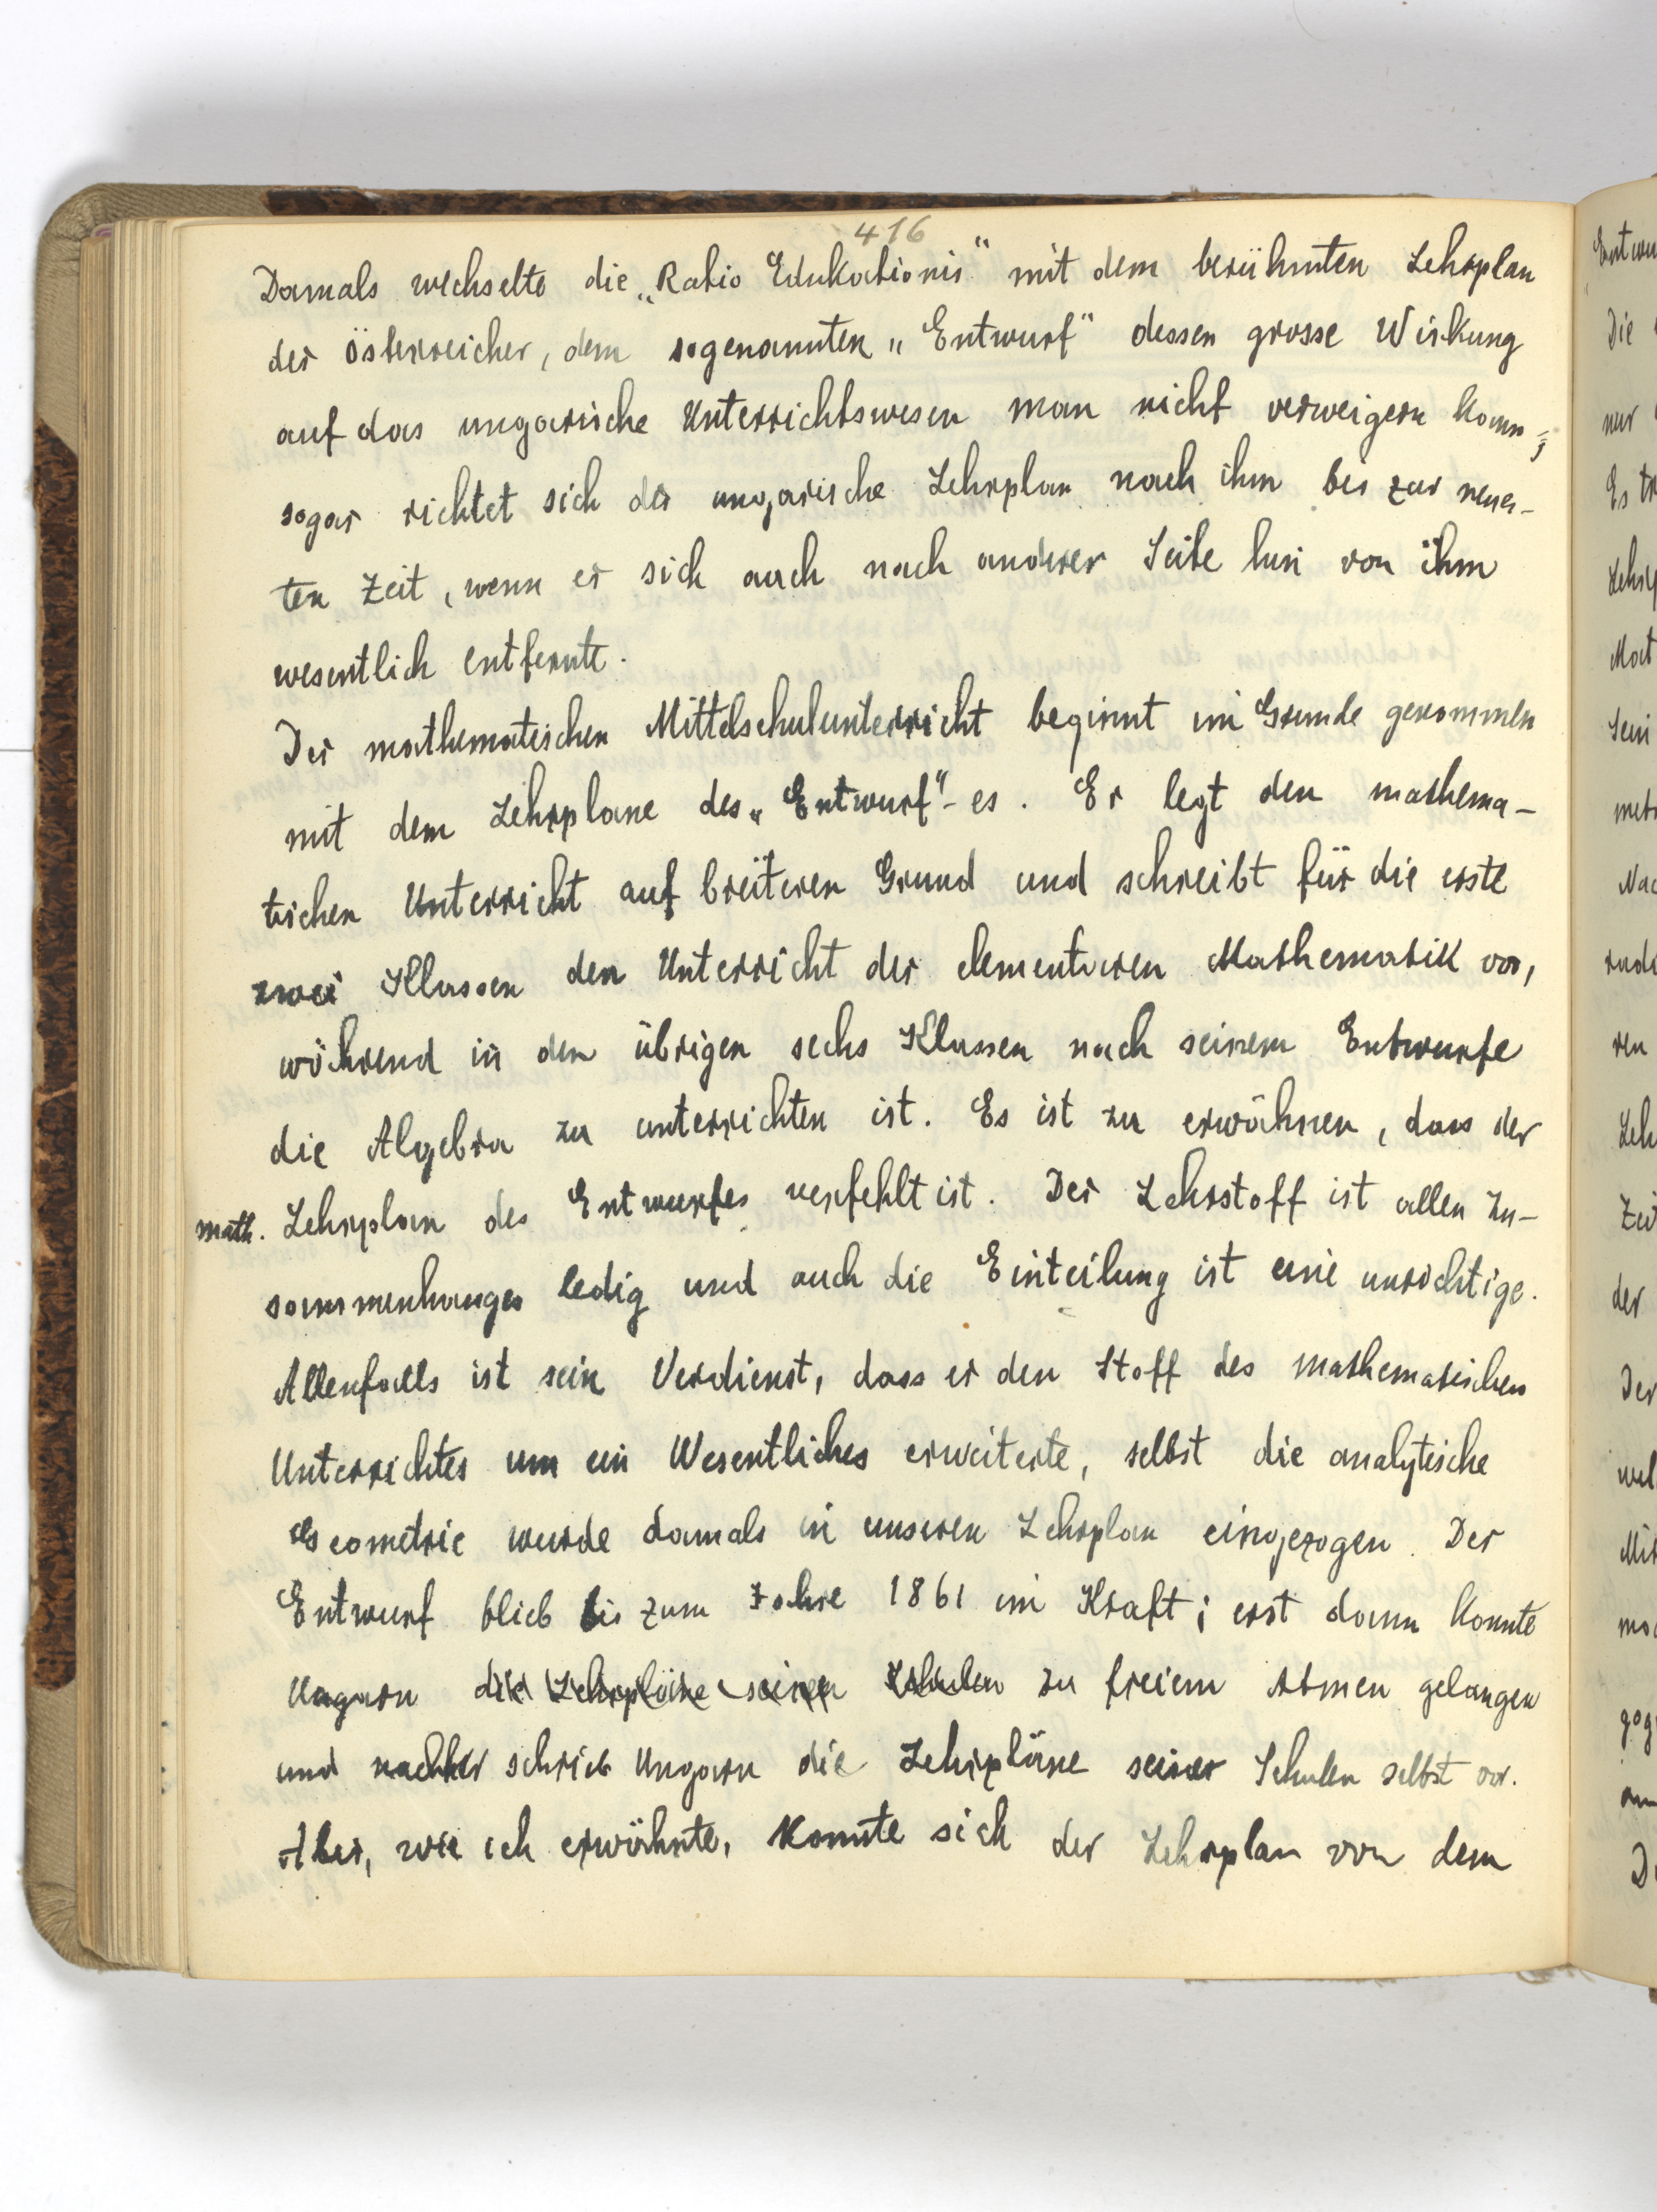 416
Damals wechselte die „Ratio Edukationis“ mit dem berühmten Lehrplan
der Österreicher, dem sogenannten „Entwurf“ dessen grosse Wirkung
auf das ungarische Unterrichtswesen man nicht verweigern kann;
sogar richtet sich der ungarische Lehrplan nach ihm bis zur neues-
ten Zeit, wenn er sich auch nach anderer Seite hin von ihm
wesentlich entfernte.
Der mathematischen Mittelschulunterricht beginnt im Grunde genommen
mit dem Lehrplane des „Entwurf“-es. Er legt den mathema-
tischen Unterricht auf breiteren Grund und schreibt für die erste
zwei Klassen den Unterricht der elementaren Mathematik vor,
während in den übrigen sechs Klassen nach seinem Entwurfe
die Algebra zu unterrichten ist. Es ist zu erwähnen, dass der
math. Lehrplan des Entwurfes verfehlt ist. Der Lehrstoff ist allen Zu-
sammenhanges ledig und auch die Einteilung ist eine unrichtige.
Allenfalls ist sein Verdienst, dass er den Stoff des mathematischen
Unterrichtes um ein Wesentliches erweiterte, selbst die analytische
Geometrie wurde damals in unseren Lehrplan eingezogen. Der
Entwurf blieb bis zum Jahre 1861 im Kraft; erst dann konnte
Ungarn die Lehrpläne seinen Schulen zu freiem Atmen gelangen
und nachher schrieb Ungarn die Lehrpläne seiner Schulen selbst vor.
Aber, wie ich erwähnte, konnte sich der Lehrplan von dem
Die
nur
der